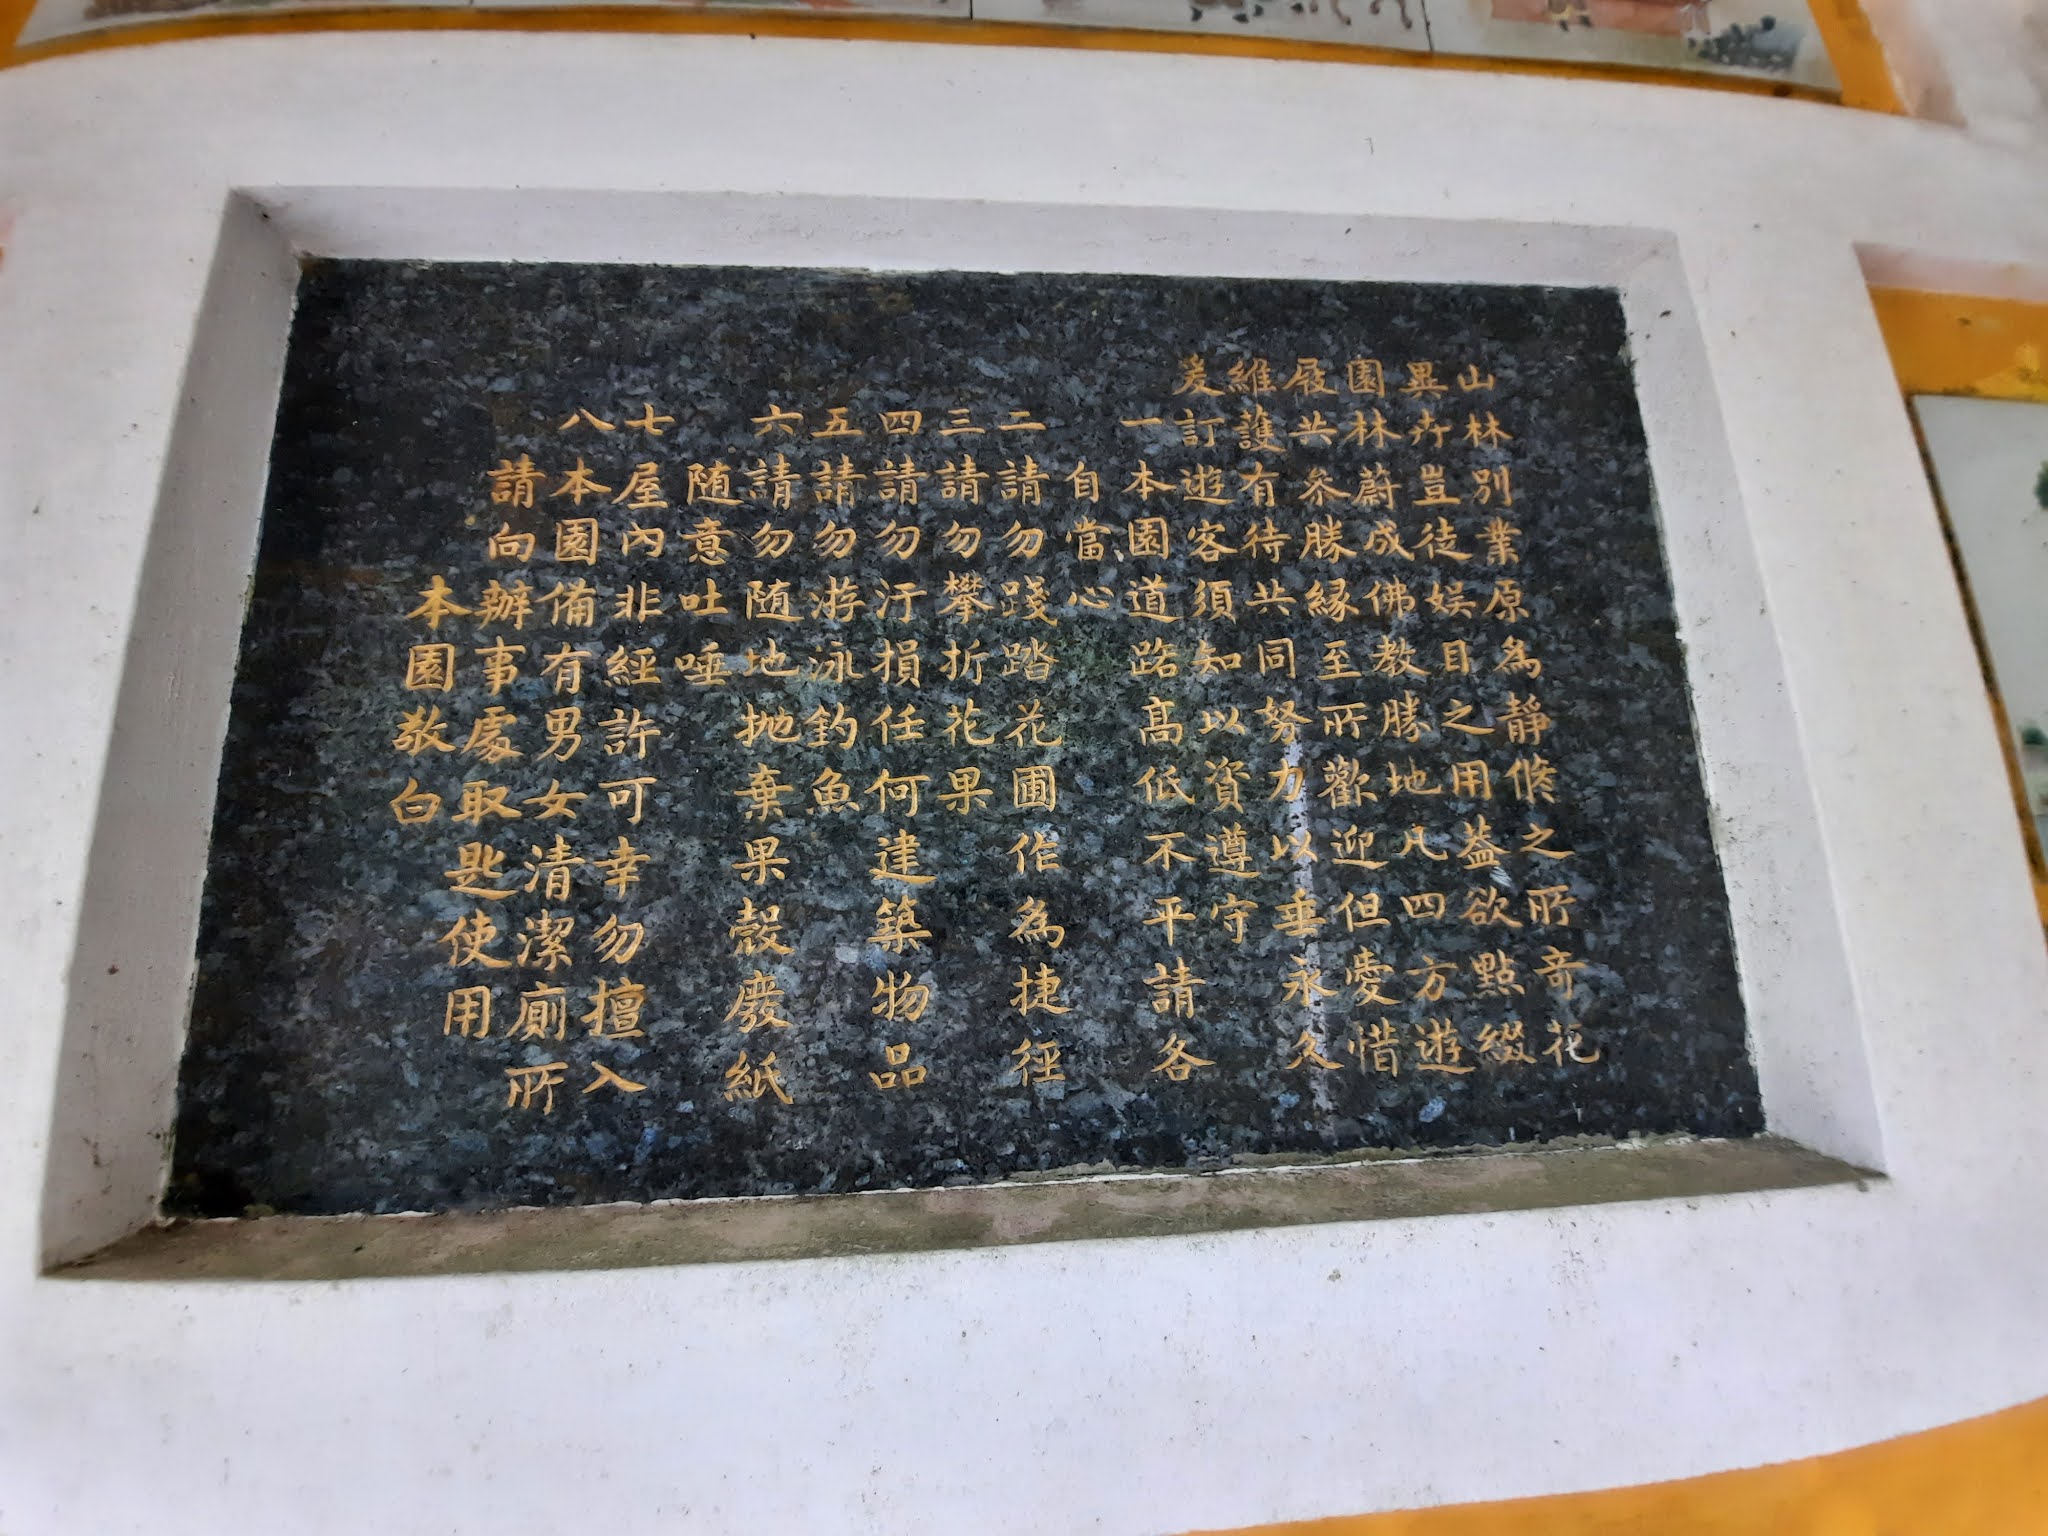 山林別業原為靜修之所奇花
異卉豈徒娛目之用蓋欲點綴
園林蔚成佛教勝地凡四方遊
屐共參勝緣至所歡迎但愛惜
維護有待共同努力以垂永久
爰訂遊客須知以資遵守
一本園道路高低不平請各
自當心
二請勿踐踏花圃作為捷徑
三請勿攀折花果
四請勿汙損任何建築物品
五請勿游泳釣魚
六請勿随地拋棄果殼廢紙
随意吐唾
七屋內非經許可幸勿擅入
八本園備有男女清潔廁所
請向辦事處取匙使用
本園敬白